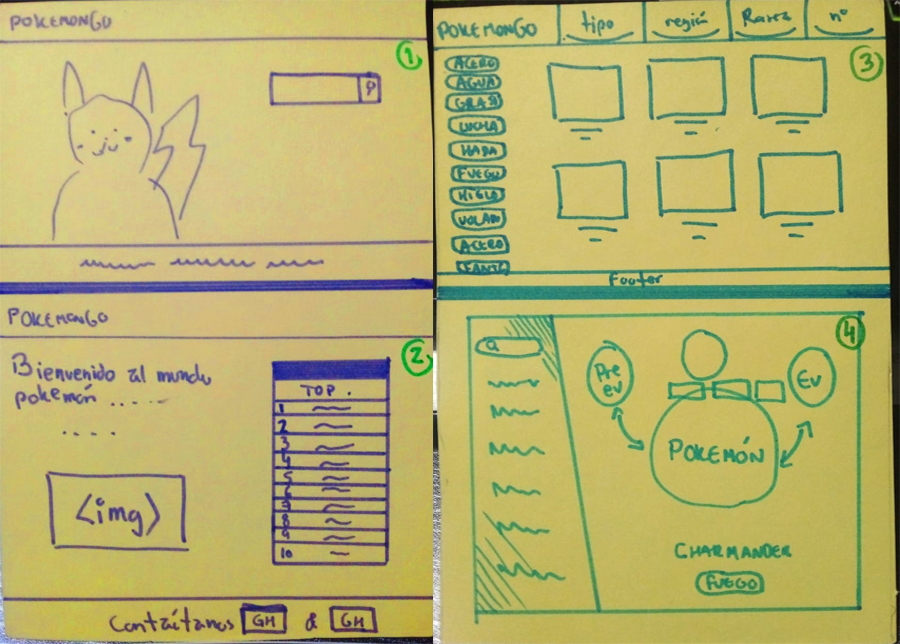 POKEMONGO
1
POKEMONGO
2
Bienvenido al mundo
pokemón .....
....
<img>
TOP.
1
2
3
4
5
6
9
8
9
10
Contáctanos GH & GH
POKEMONGO
tipo
región
Rareza
nº
3
ACERO
AGUA
LUCHA
HADA
FUEGO
HIELO
VOLADO
ACERO
FANT
Footer
4
Pre
ev
Ev
POKEMÓN
CHARMANDER
FUEGO